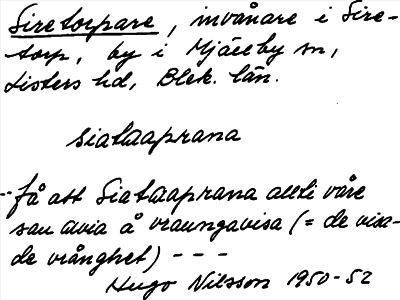 Siretorpare, invånare i Sire-
torp, by i Mjällby sn,
Listers hd, Blek. län.
siataaprana
-- få att Siataaprana allti våre
sau avia å vraungavisa (= de visa-
de vrånghet) - - -
Hugo Nilsson 1950-52